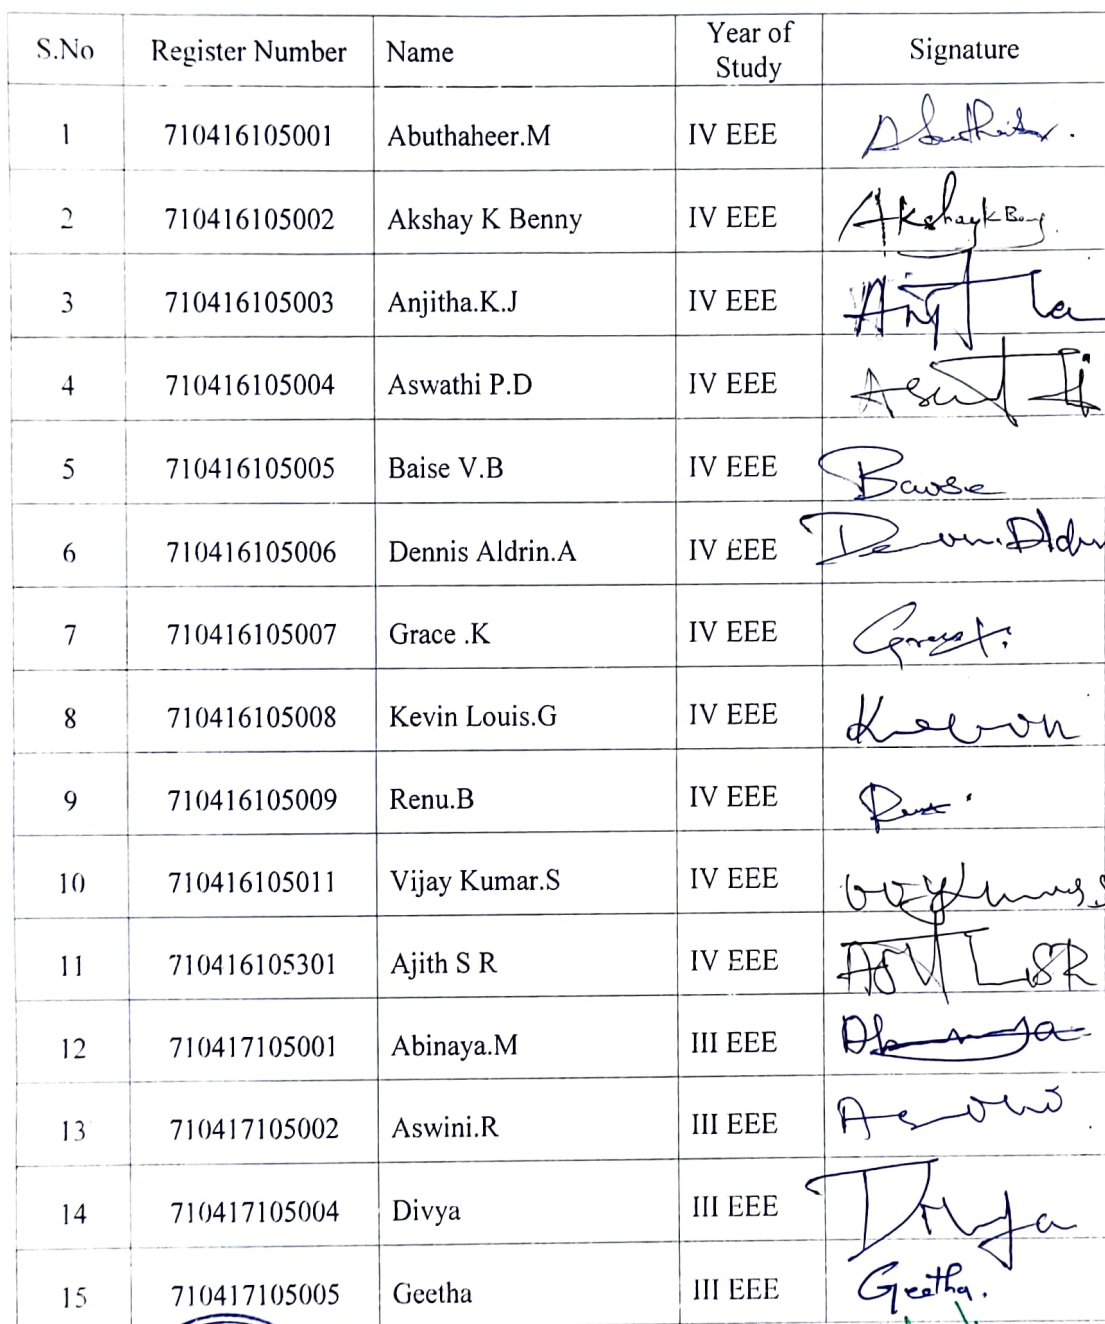 S.No Register Number Name Year of Study Signature
1 710416105001 Abuthaheer.M IV EEE Abuthaheer.
2 710416105002 Akshay K Benny IV EEE Akshay K Benny.
3 710416105003 Anjitha.K.J IV EEE Anjitha
4 710416105004 Aswathi P.D IV EEE
5 710416105005 Baise V.B IV EEE
6 710416105006 Dennis Aldrin.A IV EEE
7 710416105007 Grace .K IV EEE
8 710416105008 Kevin Louis.G IV EEE Kevin
9 710416105009 Renu.B IV EEE
10 710416105011 Vijay Kumar.S IV EEE
11 710416105301 Ajith S R IV EEE
12 710417105001 Abinaya.M III EEE
13 710417105002 Aswini.R III EEE
14 710417105004 Divya III EEE Divya
15 710417105005 Geetha III EEE Geetha.